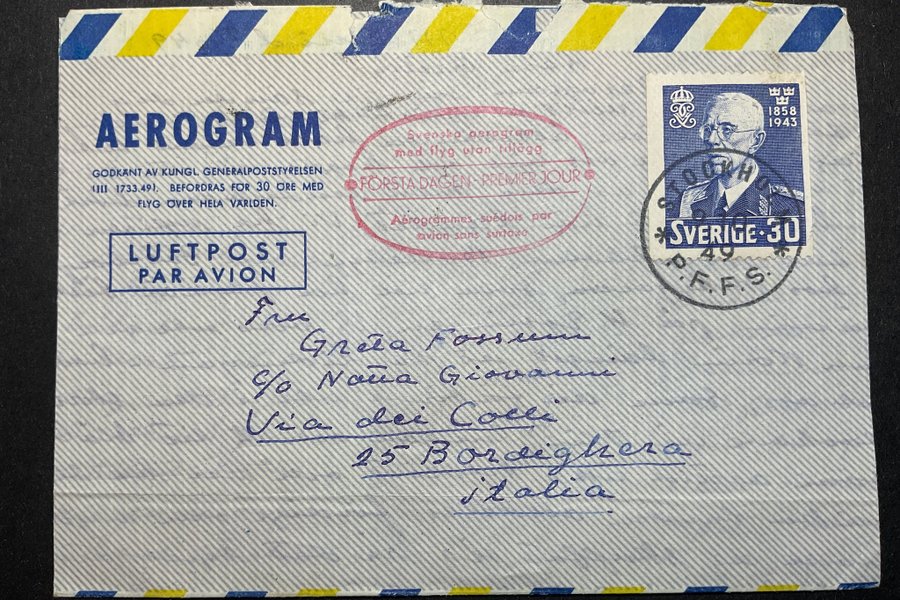 AEROGRAM
GODKÄNT AV KUNGL. GENERALPOSTSTYRELSEN
IIII 1733.491. BEFORDRAS FÖR 30 ÖRE MED
FLYG ÖVER HELA VÄRLDEN.
LUFTPOST
PAR AVION
Svenska aerogram
med flyg utan tillägg
FÖRSTA DAGEN - PREMIER JOUR
Aérogrammes suédois par
avion sans surtaxe
1858
1943
SVERIGE·30
STOCKHOLM
49
* P.F.F.S. *
Fru
Greta Fossum
c/o Notta Giovanni
Via dei Colli
25 Bordighera
italia